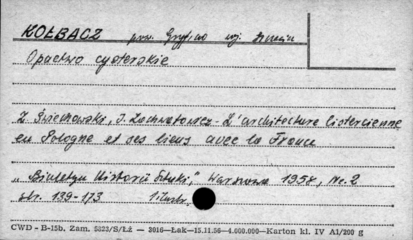 KOŁBACZ pow. Gryfino woj. Szczecin
Opactwo cysterskie
Z. Świechowski, J. Zachwatowicz - L'architecture Cistercienne
en Pologne et ses liens avec la France
„Biuletyn Historii Sztuki," Warszawa 1958, Nr. 2
str. 139-173
CWD - B-15b. Zam. 5823/S/Łż — 3016—Łak—15.11.56—4.000.000—Karton kl. IV A1/200 g